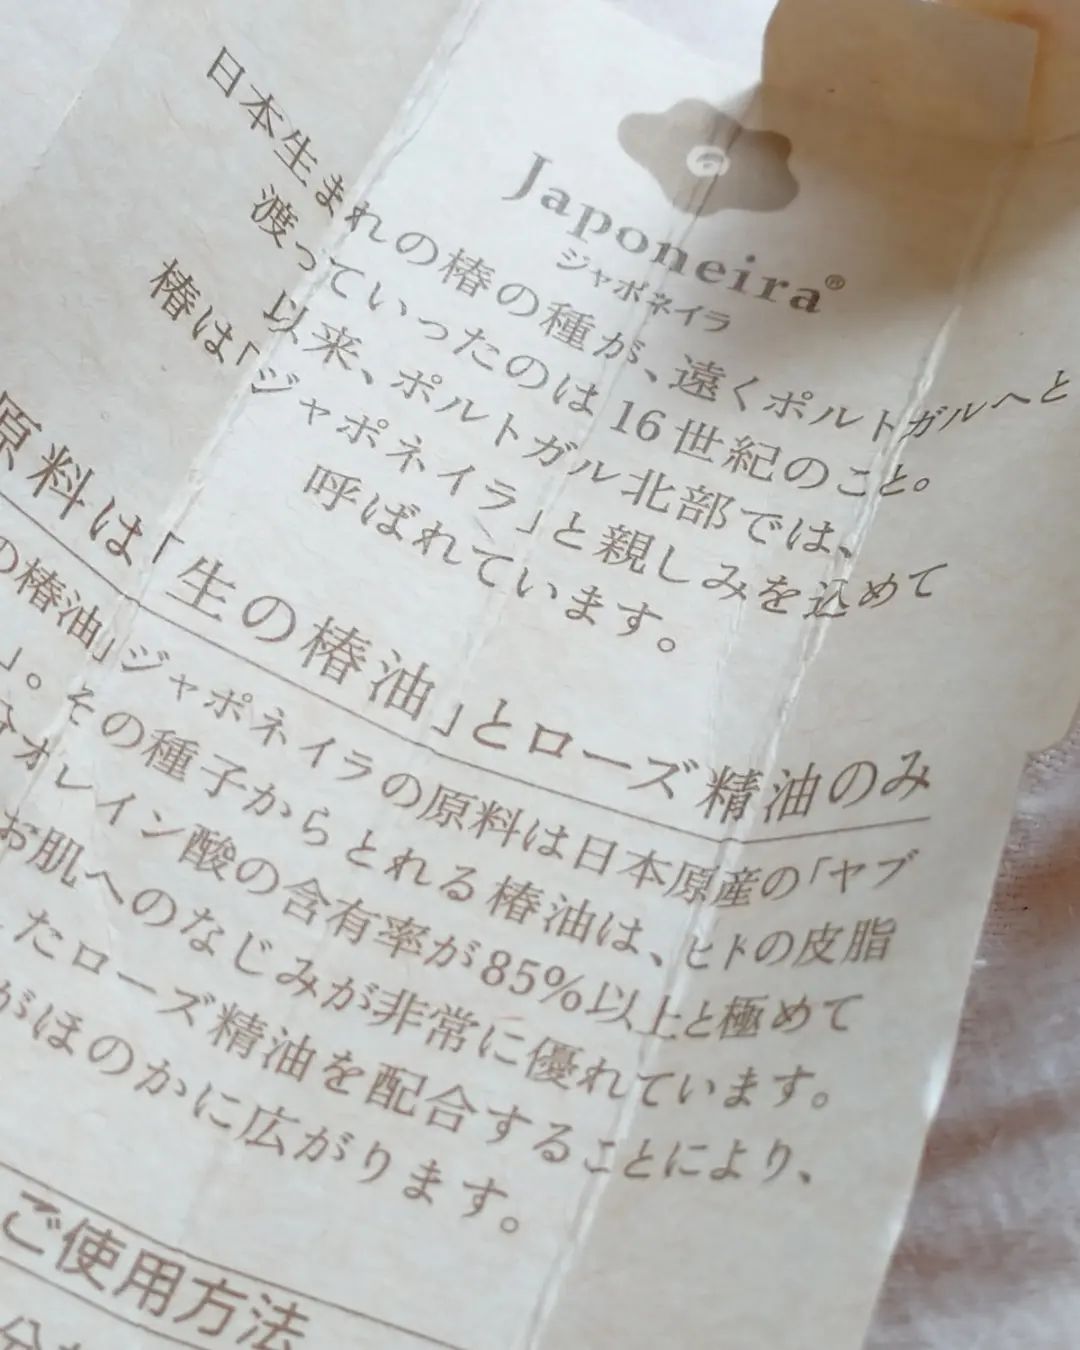 Japoneira®
ジャポネイラ
日本生まれの椿の種が、遠くポルトガルへと
渡っていったのは16世紀のこと。
以来、ポルトガル北部では、
椿は「ジャポネイラ」と親しみを込めて
呼ばれています。
原料は「生の椿油」とローズ精油のみ
の椿油」ジャポネイラの原料は日本原産の「ヤブ
」。その種子からとれる椿油は、ヒトの皮脂
分オレイン酸の含有率が85%以上と極めて
お肌へのなじみが非常に優れています。
たローズ精油を配合することにより、
がほのかに広がります。
ご使用方法